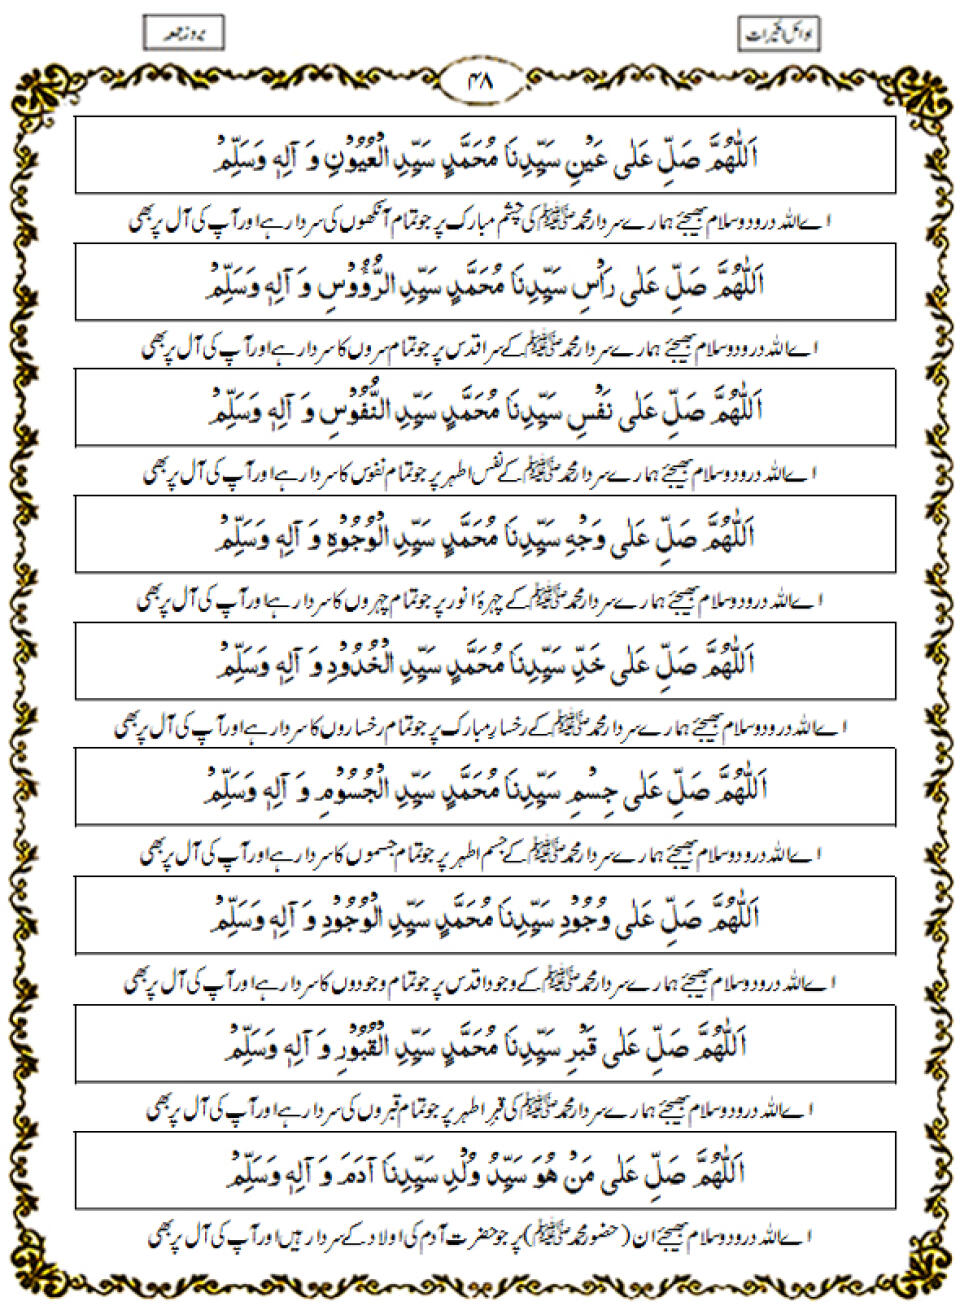 اوائل الخیرات
بروز جمعہ
۴۸
اَللّٰهُمَّ صَلِّ عَلٰی عَيْنِ سَيِّدِنَا مُحَمَّدٍ سَيِّدِ الْعُيُوْنِ وَ آلِهٖ وَسَلِّمْ
اے اللہ درود و سلام بھیجئے ہمارے سردار محمد ﷺ کی چشم مبارک پر جو تمام آنکھوں کی سردار ہے اور آپ کی آل پر بھی
اَللّٰهُمَّ صَلِّ عَلٰی رَاْسِ سَيِّدِنَا مُحَمَّدٍ سَيِّدِ الرُّؤُوْسِ وَ آلِهٖ وَسَلِّمْ
اے اللہ درود و سلام بھیجئے ہمارے سردار محمد ﷺ کے سر اقدس پر جو تمام سروں کا سردار ہے اور آپ کی آل پر بھی
اَللّٰهُمَّ صَلِّ عَلٰی نَفْسِ سَيِّدِنَا مُحَمَّدٍ سَيِّدِ النُّفُوْسِ وَ آلِهٖ وَسَلِّمْ
اے اللہ درود و سلام بھیجئے ہمارے سردار محمد ﷺ کے نفس اطہر پر جو تمام نفوس کا سردار ہے اور آپ کی آل پر بھی
اَللّٰهُمَّ صَلِّ عَلٰی وَجْهِ سَيِّدِنَا مُحَمَّدٍ سَيِّدِ الْوُجُوْهِ وَ آلِهٖ وَسَلِّمْ
اے اللہ درود و سلام بھیجئے ہمارے سردار محمد ﷺ کے چہرۂ انور پر جو تمام چہروں کا سردار ہے اور آپ کی آل پر بھی
اَللّٰهُمَّ صَلِّ عَلٰی خَدِّ سَيِّدِنَا مُحَمَّدٍ سَيِّدِ الْخُدُوْدِ وَ آلِهٖ وَسَلِّمْ
اے اللہ درود و سلام بھیجئے ہمارے سردار محمد ﷺ کے رخسارِ مبارک پر جو تمام رخساروں کا سردار ہے اور آپ کی آل پر بھی
اَللّٰهُمَّ صَلِّ عَلٰی جِسْمِ سَيِّدِنَا مُحَمَّدٍ سَيِّدِ الْجُسُوْمِ وَ آلِهٖ وَسَلِّمْ
اے اللہ درود و سلام بھیجئے ہمارے سردار محمد ﷺ کے جسم اطہر پر جو تمام جسموں کا سردار ہے اور آپ کی آل پر بھی
اَللّٰهُمَّ صَلِّ عَلٰی وُجُوْدِ سَيِّدِنَا مُحَمَّدٍ سَيِّدِ الْوُجُوْدِ وَ آلِهٖ وَسَلِّمْ
اے اللہ درود و سلام بھیجئے ہمارے سردار محمد ﷺ کے وجود اقدس پر جو تمام وجودوں کا سردار ہے اور آپ کی آل پر بھی
اَللّٰهُمَّ صَلِّ عَلٰی قَبْرِ سَيِّدِنَا مُحَمَّدٍ سَيِّدِ الْقُبُوْرِ وَ آلِهٖ وَسَلِّمْ
اے اللہ درود و سلام بھیجئے ہمارے سردار محمد ﷺ کی قبرِ اطہر پر جو تمام قبروں کی سردار ہے اور آپ کی آل پر بھی
اَللّٰهُمَّ صَلِّ عَلٰی مَنْ هُوَ سَيِّدُ وُلْدِ سَيِّدِنَا آدَمَ وَ آلِهٖ وَسَلِّمْ
اے اللہ درود و سلام بھیجئے ان (حضور محمد ﷺ) پر جو حضرت آدم کی اولاد کے سردار ہیں اور آپ کی آل پر بھی